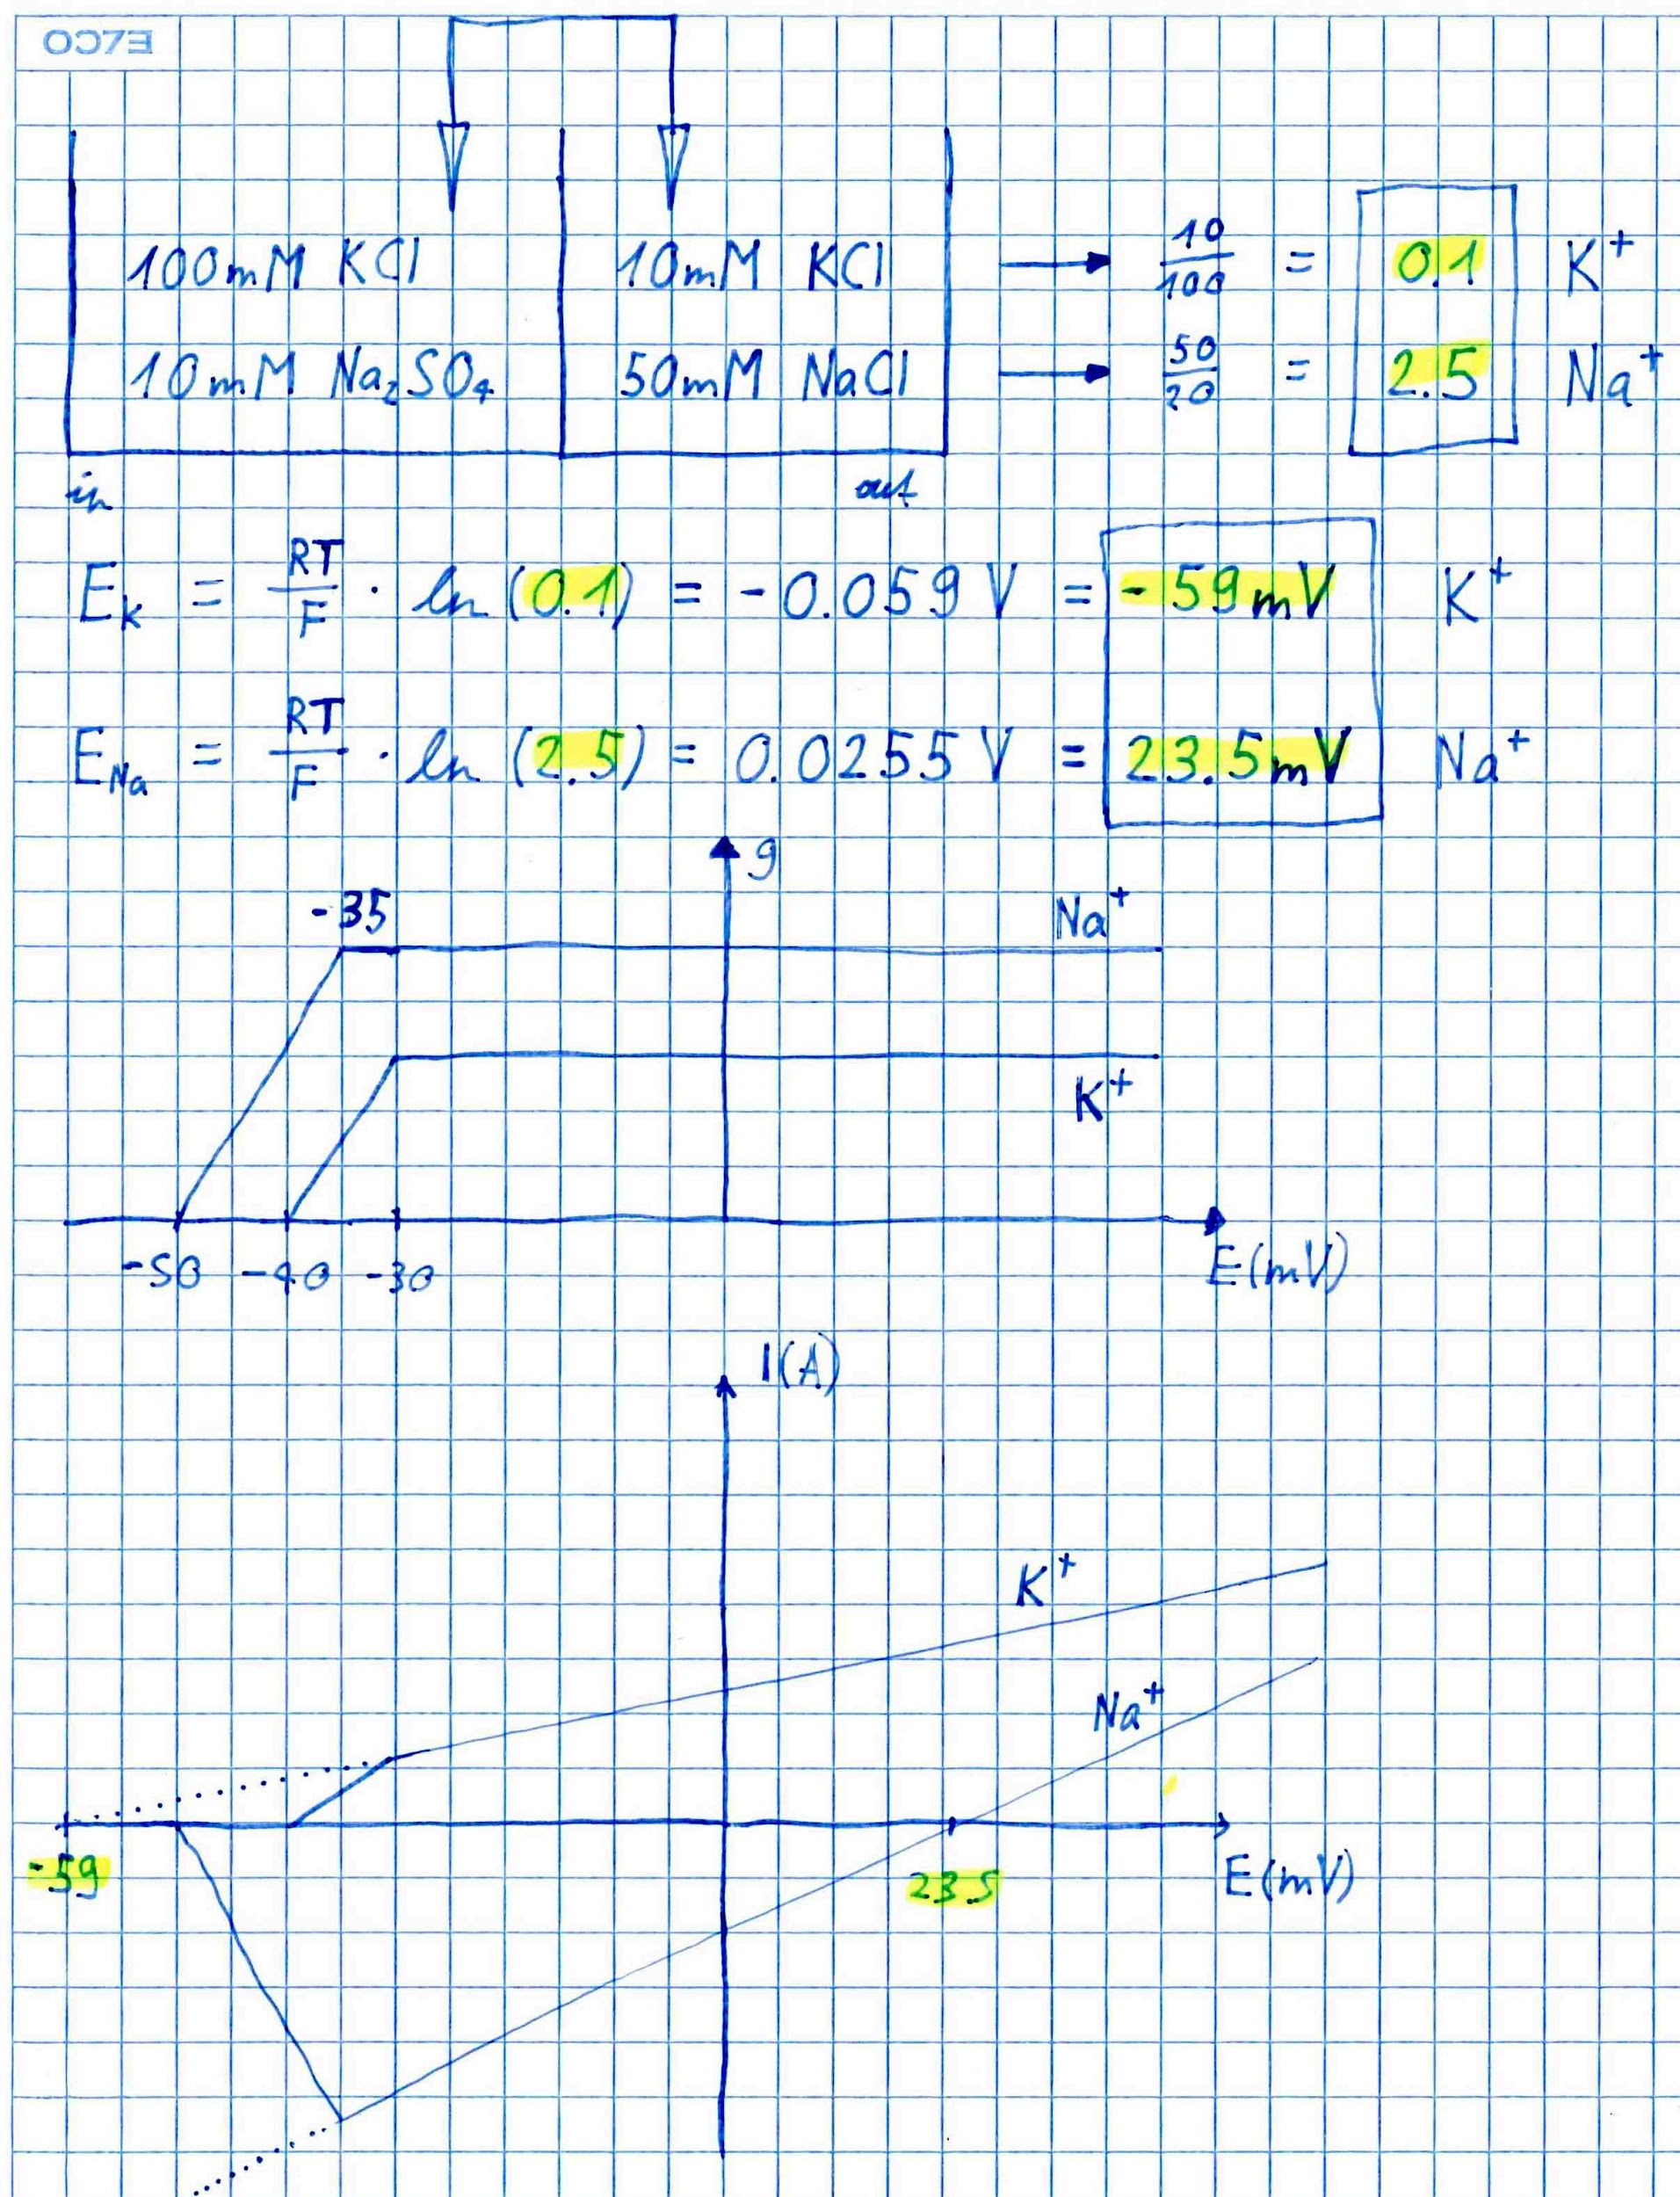 ELCO
100mM KCl 10mM KCl → 10/100 = 0.1 K⁺
10mM Na₂SO₄ 50mM NaCl → 50/20 = 2.5 Na⁺
in out
E_K = RT/F · ln (0.1) = -0.059 V = -59mV K⁺
E_Na = RT/F · ln (2.5) = 0.0255 V = 23.5mV Na⁺
g
-35 Na⁺
K⁺
-50 -40 -30 E(mV)
I(A)
K⁺
Na⁺
-59 23.5 E(mV)